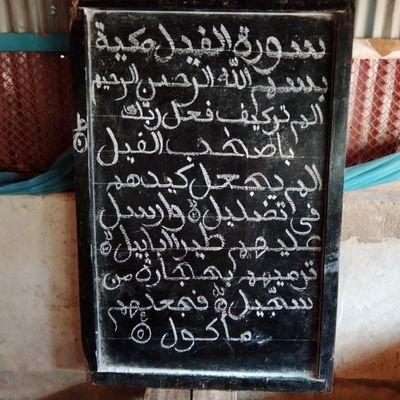 سورة الفيل مكية
بسم الله الرحمن الرحيم
الم تر كيف فعل ربّك
باصحٰب الفيل
الم يجعل كيدهم
فى تضليل وارسل
عليهم طيرا ابابيل
ترميهم بحجارة من
سجّيل فجعلهم
مأكول